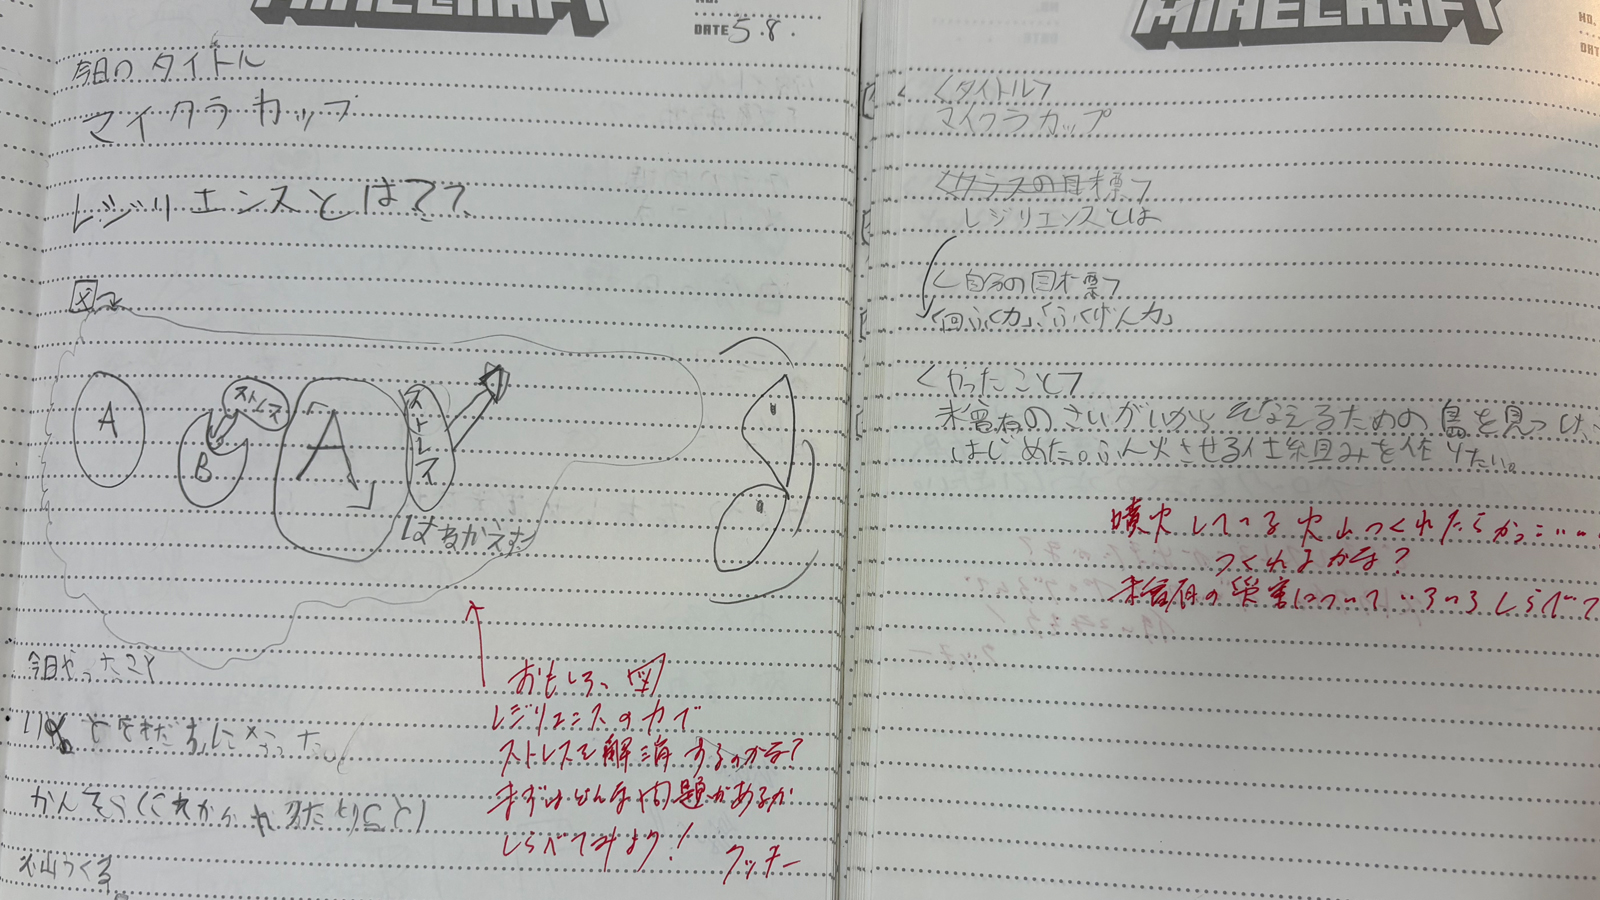 MINECRAFT
DATE 5.8.
今日のタイトル
マイクラカップ
レジリエンスとは??
図
A
ストレス
B
「A」
ストレス
はねかえす
今日やったこと
かんそう(これからやりたいこと)
火山つくる
おもしろい図
レジリエンスの力で
ストレスを解消するのかな?
まずはどんな問題があるか
しらべてみよう!
クッキー
MINECRAFT
NO.
DAT
<タイトル>
マイクラカップ
<クラスの目標>
レジリエンスとは
<自分の目標>
「回ふく力」「ふくげん力」
<やったこと>
未曾有のさいがいから そなえるための島を見つけ、
はじめた。ふん火させる仕組みを作りたい。
噴火している火山つくれたらかっこ
つくれるかな?
未曾有の災害についていろいろしらべて